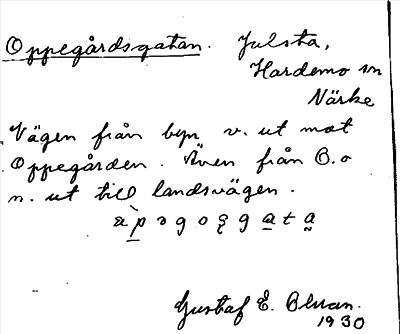 Oppegårdsgatan. Julsta,
Hardemo sn
Närke
Vägen från byn v. ut mot
Oppegården. Även från B. o
n. ut till landsvägen.
Gustaf E.
1930